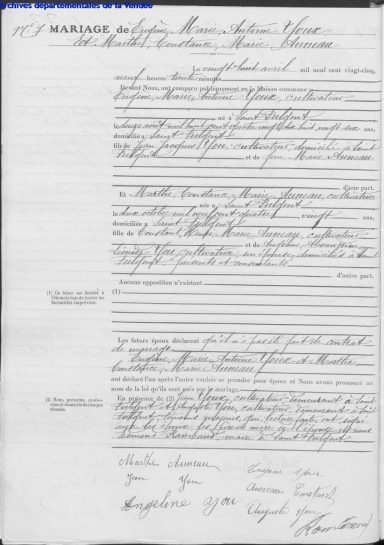 Archives départementales de la Vendée
N° 7 MARIAGE de Eugène Marie Antoine Youx
Et Marthe, Constance, Marie Auneau
Le vingt huit avril mil neuf cent vingt-cinq,
neuf heures trente minutes
Devant Nous, ont comparu publiquement en la Maison commune
Eugène, Marie, Antoine Youx, cultivateur
né à Saint Fulgent
le douze août mil huit cent quatre vingt dix huit, vingt six ans,
domicilié à Saint Fulgent
fils de Jean Jacques You cultivateur, domicilié à Saint
Fulgent et de Marie Auneau
d'une part.
Et Marthe, Constance, Marie Auneau, cultivatrice
née à Saint Fulgent
le octobre mil neuf cent quatre vingt ans,
domiciliée à Saint Fulgent
fille de Constant, Marie Auneau, cultivateur
et de
You cultivatrice son épouse domiciliés à Saint
Fulgent présents et consentants
d'autre part.
Aucune opposition n'existant
(1) Ce blanc est destiné à
l'énonciation de toutes les
formalités imprévues.
(1)
Les futurs époux déclarent qu'il n'a pas été fait de contrat
de mariage
Eugène, Marie, Antoine Youx et Marthe,
Constance, Marie Auneau
ont déclaré l'un après l'autre vouloir se prendre pour époux et Nous avons prononcé au
nom de la loi qu'ils sont unis par le mariage.
(2) Nom, prénoms, profes-
sion et domicile de chaque
témoin.
En présence de (2) Jean Youx, cultivateur, demeurant à Saint
Fulgent et Auguste You, cultivateur, demeurant à Saint
Fulgent, témoins majeurs, qui lecture faite, ont signé
avec les époux, les père et mère de l'épouse et nous
maire de Saint Fulgent
Marthe Auneau
Eugène You
Jean You
Auneau Constant
Angeline You
Auguste You